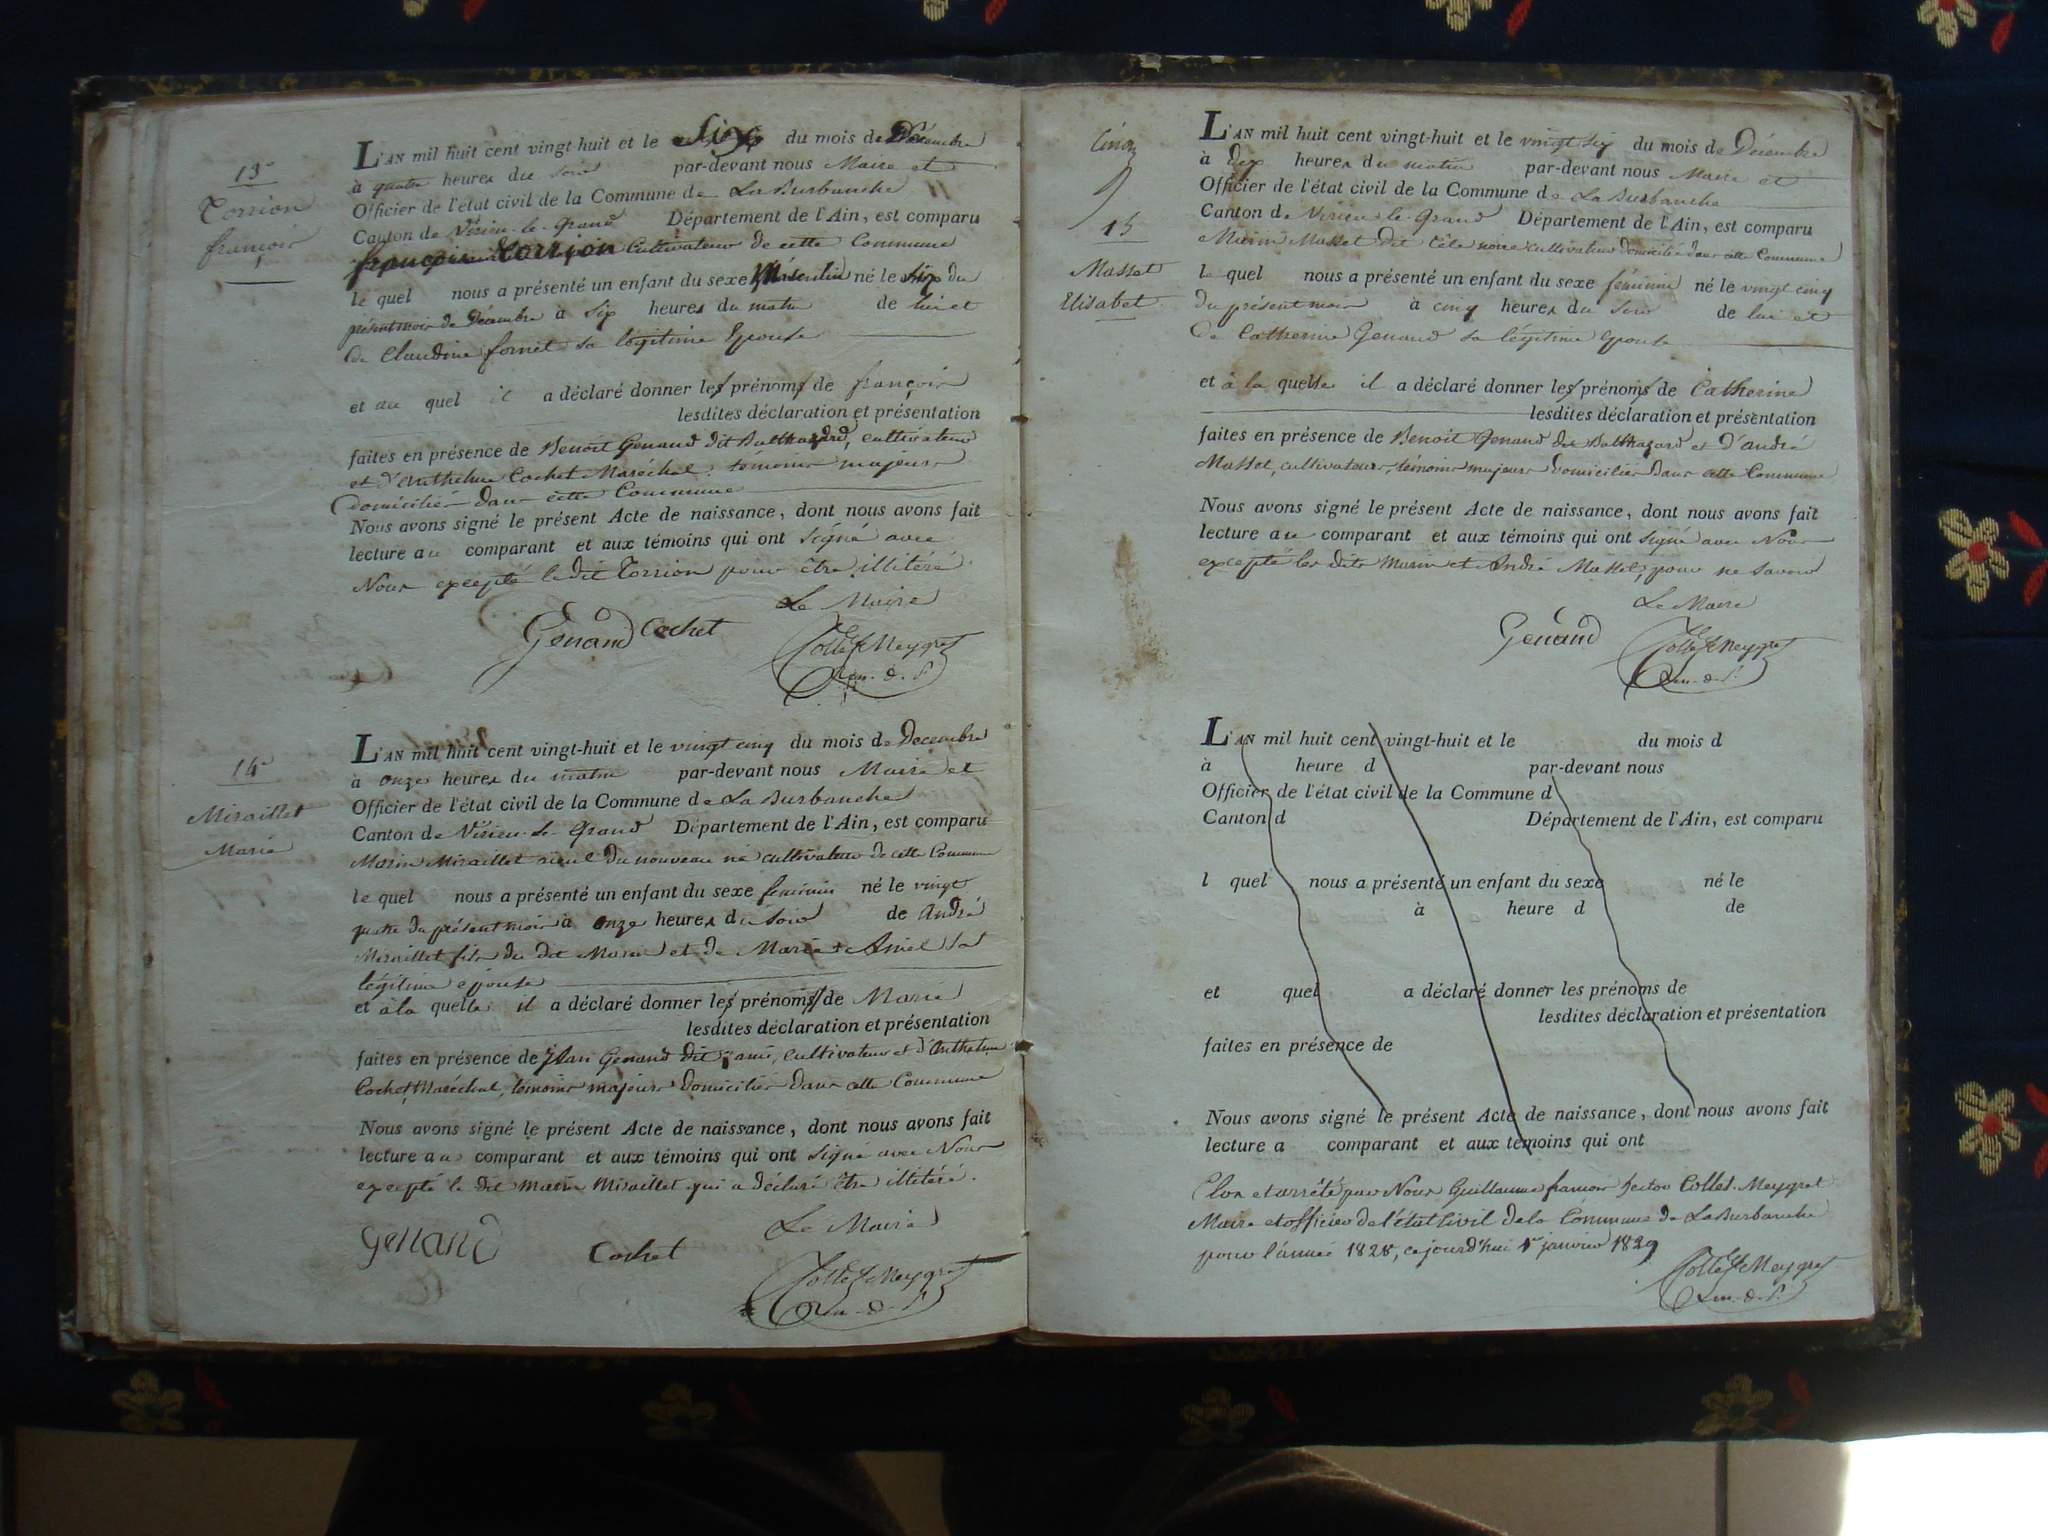 13e
Torrion
françois
L'AN mil huit cent vingt-huit et le Six du mois de Décembre
à quatre heures du soir par-devant nous Maire et
Officier de l'état civil de la Commune de La Burbanche
Canton de Virieu-le-Grand Département de l'Ain, est comparu
françois Torrion Cultivateur de cette Commune
le quel nous a présenté un enfant du sexe Masculin né le six du
présent mois de Decembre à six heures du matin de lui et
de Claudine fornet sa légitime Epouse
et au quel il a déclaré donner les prénoms de françois
lesdites déclaration et présentation
faites en présence de Benoit Genand dit Balthazard, cultivateur
et d'Anthelme Cochet Maréchal, témoins majeurs
domiciliés dans cette Commune
Nous avons signé le présent Acte de naissance, dont nous avons fait
lecture au comparant et aux témoins qui ont signé avec
Nous excepté le dit Torrion pour être illitéré.
Le Maire
Genand Cochet Colles Meygret
14e
Miraillet
Marie
L'AN mil huit cent vingt-huit et le vingt cinq du mois de Decembre
à onze heures du matin par-devant nous Maire et
Officier de l'état civil de la Commune de La Burbanche
Canton de Virieu-le-Grand Département de l'Ain, est comparu
Marin Miraillet aieul du nouveau né cultivateur de cette Commune
le quel nous a présenté un enfant du sexe feminin né le vingt
quatre du présent mois à onze heures du soir de André
Miraillet fils du dit Marin et de Marie Amiel sa
légitime epouse
et à la quelle il a déclaré donner les prénoms de Marie
lesdites déclaration et présentation
faites en présence de Genand dit cultivateur et d'Anthelme
Cochet Maréchal, témoins majeurs domiciliés dans cette Commune
Nous avons signé le présent Acte de naissance, dont nous avons fait
lecture au comparant et aux témoins qui ont signé avec Nous
excepté le dit Marin Miraillet qui a déclaré être illitéré.
Le Maire
Genand Cochet Colles Meygret
15
Masset
Elisabet
L'AN mil huit cent vingt-huit et le vingt six du mois de Décembre
à dix heures du matin par-devant nous Maire et
Officier de l'état civil de la Commune de La Burbanche
Canton de Virieu-le-Grand Département de l'Ain, est comparu
Marin Masset dit tête noire cultivateur domicilié dans cette Commune
le quel nous a présenté un enfant du sexe féminin né le vingt cinq
du présent mois à cinq heures du soir de lui et
de Catherine Genand sa légitime epouse
et à la quelle il a déclaré donner les prénoms de Catherine
lesdites déclaration et présentation
faites en présence de Benoit Genand dit Balthazard et d'andré
Masset, cultivateurs, témoins majeurs domiciliés dans cette Commune
Nous avons signé le présent Acte de naissance, dont nous avons fait
lecture au comparant et aux témoins qui ont signé avec Nous
excepté les dits Marin et André Masset, pour ne savoir
Le Maire
Genand Colles Meygret
L'AN mil huit cent vingt-huit et le du mois d
à heure d par-devant nous
Officier de l'état civil de la Commune d
Canton d Département de l'Ain, est comparu
l quel nous a présenté un enfant du sexe né le
à heure d de
et quel a déclaré donner les prénoms de
lesdites déclaration et présentation
faites en présence de
Nous avons signé le présent Acte de naissance, dont nous avons fait
lecture a comparant et aux témoins qui ont
Clos et arrêté par Nous Guillaume françois hector Colles-Meygret
Maire et officier de l'état Civil de la Commune de La Burbanche
pour l'année 1828, ce jourd'hui 1er janvier 1829
Colles Meygret